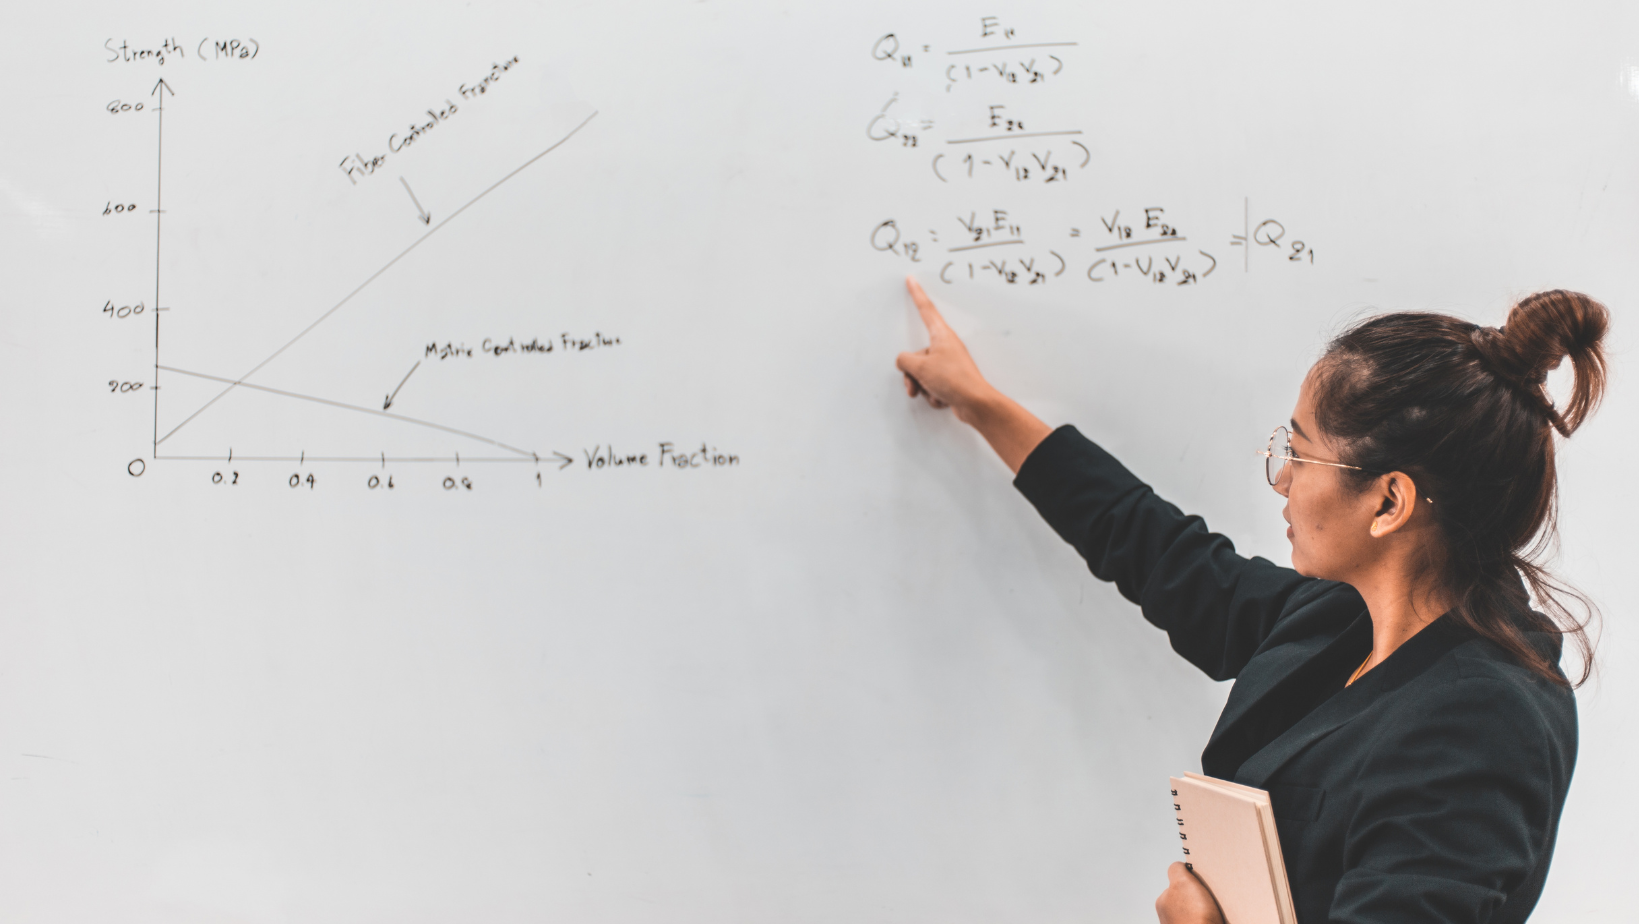 Strength (MPa)
800
600
400
200
0
0.2 0.4 0.6 0.8 1
Volume Fraction
Fiber Controlled Fraction
Matrix Controlled Fraction
Q₁₁ = E₁₁ / (1-V₁₂V₂₁)
Q₂₂ = E₂₂ / (1-V₁₂V₂₁)
Q₁₂ = V₂₁E₁₁ / (1-V₁₂V₂₁) = V₁₂E₂₂ / (1-V₁₂V₂₁) = Q₂₁